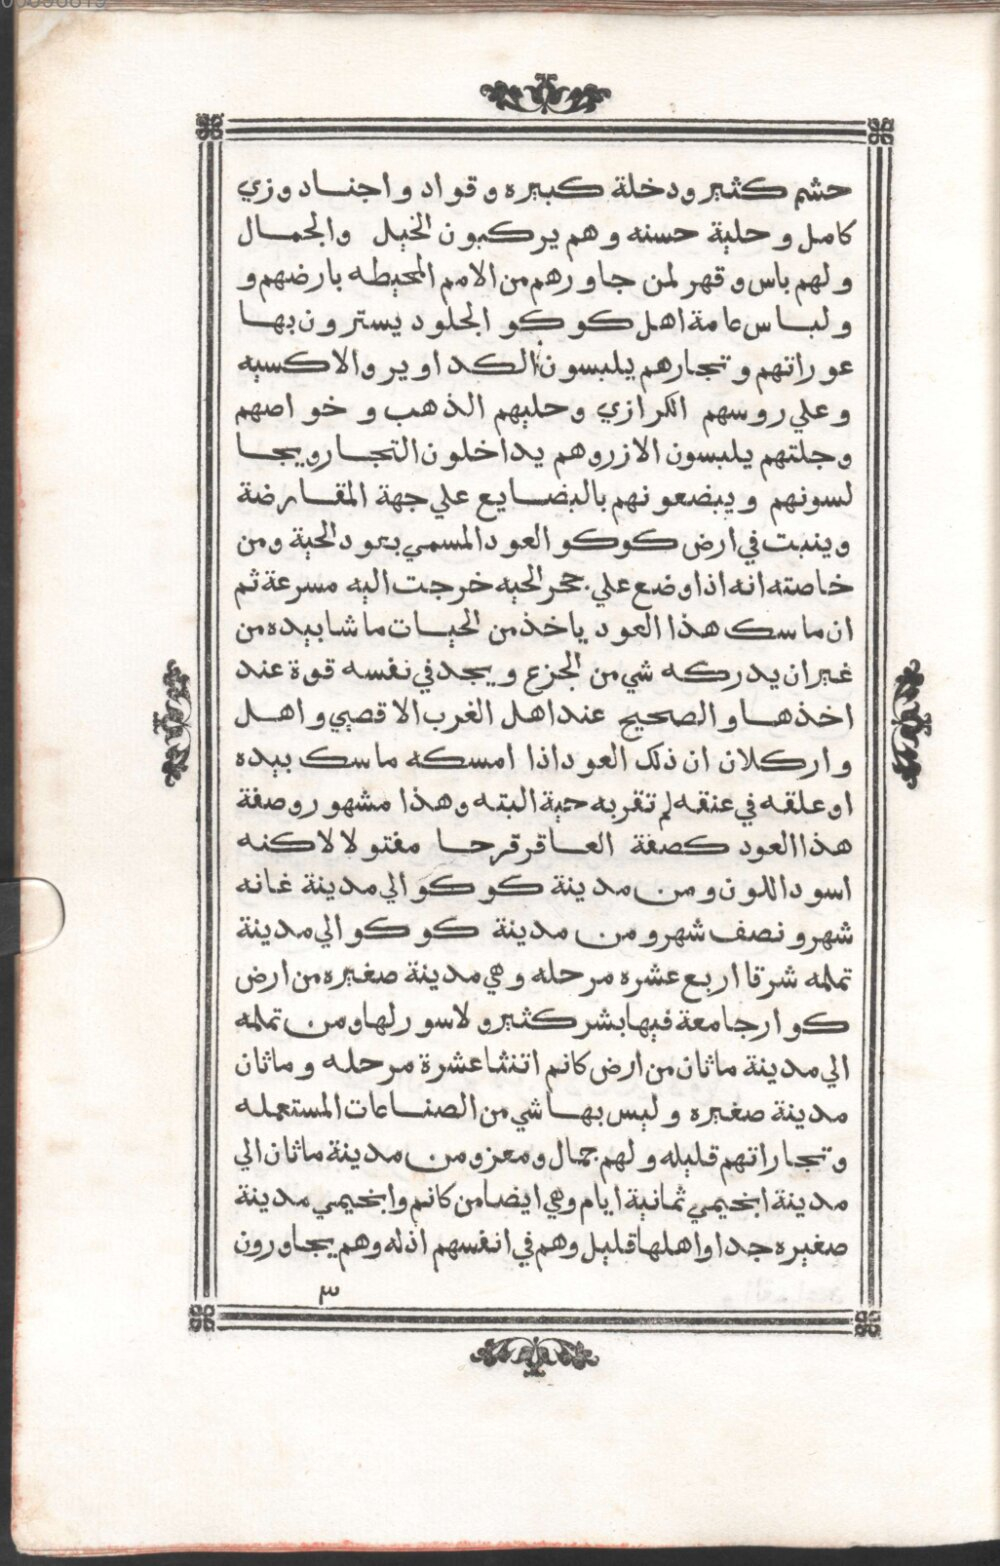 حشم كثير ودخلة كبيره وقواد واجناد وزي
كامل وحلية حسنه وهم يركبون الخيل والجمال
ولهم باس وقهر لمن جاورهم من الامم المحيطه بارضهم و
ولباس عامة اهل كوكو الجلود يسترون بها
عوراتهم وتجارهم يلبسون الكداوير والاكسيه
وعلي روسهم الكرازي وحليهم الذهب وخواصهم
وجلتهم يلبسون الازر وهم يداخلون التجار ويجا
لسونهم ويبضعونهم بالبضايع علي جهة المقارضة
وينبت في ارض كوكو العود المسمي بعود الحية ومن
خاصته انه اذا وضع علي جحر الحيه خرجت اليه مسرعة ثم
ان ماسك هذا العود ياخذ من الحيات ما شا بيده من
غير ان يدركه شي من الجزع ويجد في نفسه قوة عند
اخذها والصحيح عند اهل الغرب الاقصي واهل
واركلان ان ذلك العود اذا امسكه ماسك بيده
او علقه في عنقه لم تقربه حية البته وهذا مشهور وصفة
هذا العود كصفة العاقرقرحا مفتولا لاكنه
اسود اللون ومن مدينة كوكو الي مدينة غانه
شهر ونصف شهر ومن مدينة كوكو الي مدينة
تملمه شرقا اربع عشره مرحله وهي مدينة صغيره من ارض
كوار جامعة فيها بشر كثير ولا سور لها ومن تملمه
الي مدينة ماثان من ارض كانم اتنثا عشرة مرحله وماثان
مدينة صغيره وليس بها شي من الصناعات المستعمله
وتجاراتهم قليله ولهم جمال ومعز ومن مدينة ماثان الي
مدينة انجيمي ثمانية ايام وهي ايضا من كانم وانجيمي مدينة
صغيره جدا واهلها قليل وهم في انفسهم اذله وهم يجاورون
٣